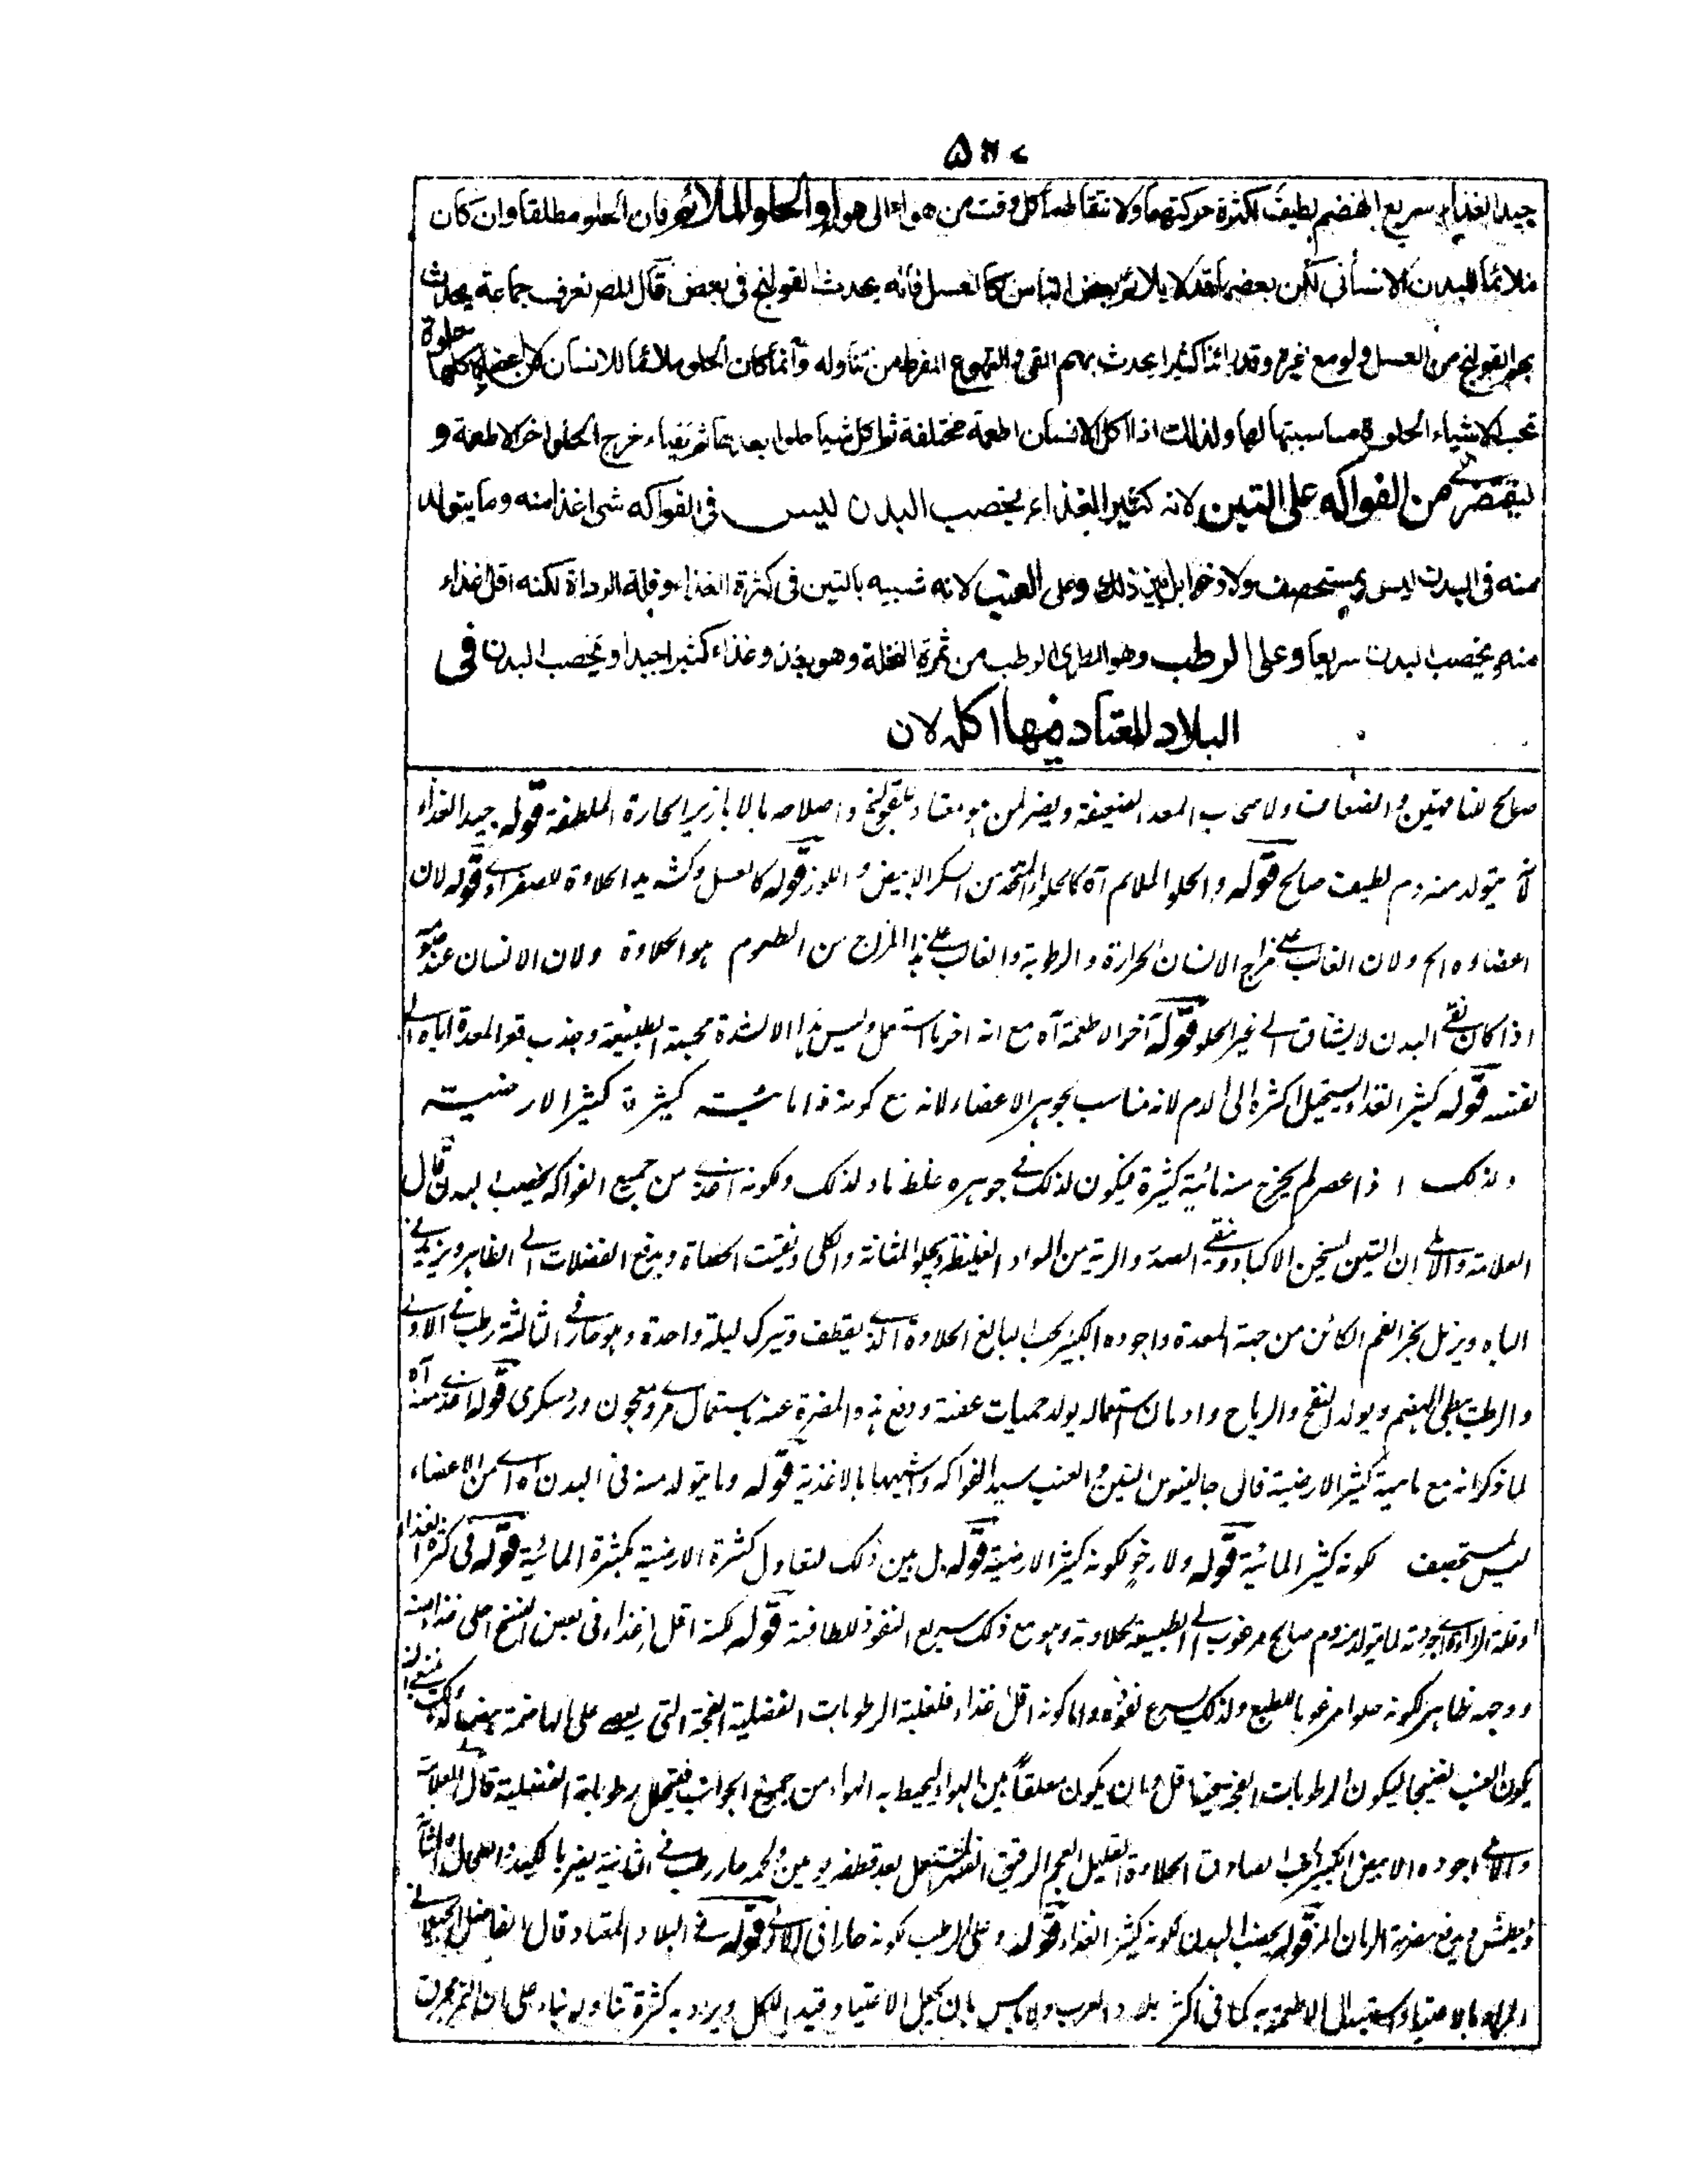 جيدا لغذاء سريع الهضم لطيف لكثرة حركتهما ولانتقالهما كل وقت من هواء الى هواء و الحلو الملائم فان الحلو مطلقا وان كان
ملائما للبدن الانسانى لكن بعضها قد لا يلائم بعض الناس كالعسل فانه يحدث القولنج فى بعض قال المص نعرف جماعة يحدث
بهم القولنج من العسل ولو مع غيره وقد راينا كثيرا يحدث بهم القى و التهوع المفرط من تناوله وانما كان الحلو ملائما للانسان لان اعضاءه كلها حلوة
تحب الاشياء الحلوة مناسبتها لها ولذلك اذا اكل الانسان اطعمة مختلفة ثم اكل شيا حلوا بعدها ثم تقياء خرج الحلو اخر الاطعمة و
ليقتصر من الفواكه على التين لانه كثير الغذاء يخصب البدن ليس فى الفواكه شى اغذا منه وما يتولد
منه فى البدن ليس بمستحصف ولا رخوا بل بين ذلك وعلى العنب لانه شبيه بالتين فى كثرة الغذاء وقلة الرداة لكنه اقل غذاء
منه ويخصب البدن سريعا وعلى الرطب وهو الطرى الرطب من ثمرة النخلة وهو يغذو غذاء كثيرا جيدا ويخصب البدن فى
البلاد المعتاد فيها اكله لان
صالح للناقهين و الضعاف ولاصحاب المعد الضعيفة ويضر لمن هو معتاد بالقولنج و اصلاحه بالابازير الحارة الملطفة قوله جيد الغذاء
لانه يتولد منه دم لطيف صالح قوله و الحلو الملايم آه كالحلواء المتخذ من السكر الابيض و اللوز قوله كالعسل وكشديد الحلاوة للصفراوى قوله لان
اعضاءه الح ولان الغالب على مزاج الانسان الحرارة والرطوبة والغالب على هذا المزاج من الطعوم هو الحلاوة ولان الانسان عند
اذا كان نقى البدن لا يشتاق الى غير الحلو قوله آخر الاطعمة آه مع انه اخر ما استعمل وليس هذا الا لشدة محبة الطبيعة وجذب قعر المعدة اياه الى
نفسه قوله كثير الغذاء يستحيل اكثره الى الدم لانه مناسب بجوهر الاعضاء لانه مع كونه ذا مائية كثيرة كثير الارضية
ولذلك اذا عصر لم يخرج منه مائية كثيرة فيكون لذلك فى جوهره غلظ ما و لذلك ولكونه اغذى من جميع الفواكه يخصب البدن قال
العلامة والاملى ان التين يسخن الاكباد وينقى الصدر والرية من المواد الغليظة ويجلو المثانة والكلى ويفتت الحصاة ويدفع الفضلات الى الظاهر ويزيد فى
الباه ويزيل بخر الفم الكائن من جهة المعدة واجوده الكبير البالغ الحلاوة الذى يقطف ويترك ليلة واحدة وهو حار فى الثالثة رطب فى الاولى
والرطب بطى الهضم ويولد النفخ والرياح وادمان استعماله يولد حميات عفنة ودفع هذه المضرة عنه باستعمال مرى معجون ورد سكرى قوله اغذى منه آه
لما ذكر انه مع ماهية كثير الارضية قال جالينوس التين و العنب سيد الفواكه واشبهها بالاغذية قوله وما يتولد منه فى البدن آه اى من الاعضاء
ليس بمستحصف لكونه كثير المائية قوله ولا رخو لكونه كثير الارضية قوله بل بين ذلك لتعادل كثرة الارضية بكثرة المائية قوله فى كثرة الغذاء
وقلة الرداءة اى جودته لما يتولد منه دم صالح مرغوب الى الطبيعة بحلاوته وهو مع ذلك سريع النفوذ للطافته قوله لكنه اقل اغذاء فى بعض النسخ اعلى غذاء منه
ووجهه ظاهر لكونه حلوا مرغوبا للطبع ولذلك يسرع نفوذه واما كونه اقل غذاء فلغلبة الرطوبات الفضلية الفجة التى يعصى على الهاضمة
يكون العنب نضيجا ليكون الرطوبات الفجة فيها قل و ان يكون معلقا بين الهواء ليحيط به الهواء من جميع الجوانب فيتحلل رطوبته الفضلية قال العلامة
والاملى اجوده الابيض الكبير الصادق الحلاوة القليل العجم الرقيق القشر المستعمل بعد قطفه بيومين ولحمه حار رطب فى الثانية يضر بالكبد والطحال
ويعطش ويدفع مضرة الرمان المز قوله يخصب البدن لكونه كثير الغذاء قوله وعلى الرطب لكونه حارا فى الاولى قوله فى البلاد المعتاد قال الفاضل الجيلانى
المراد بالاعتياد استعمال الاطعمة به كما فى اكثر بلاد العرب ولا باس بان يجعل الاعتياد قيد الاكل ويراد به كثرة تناوله بناء على ان التمرين